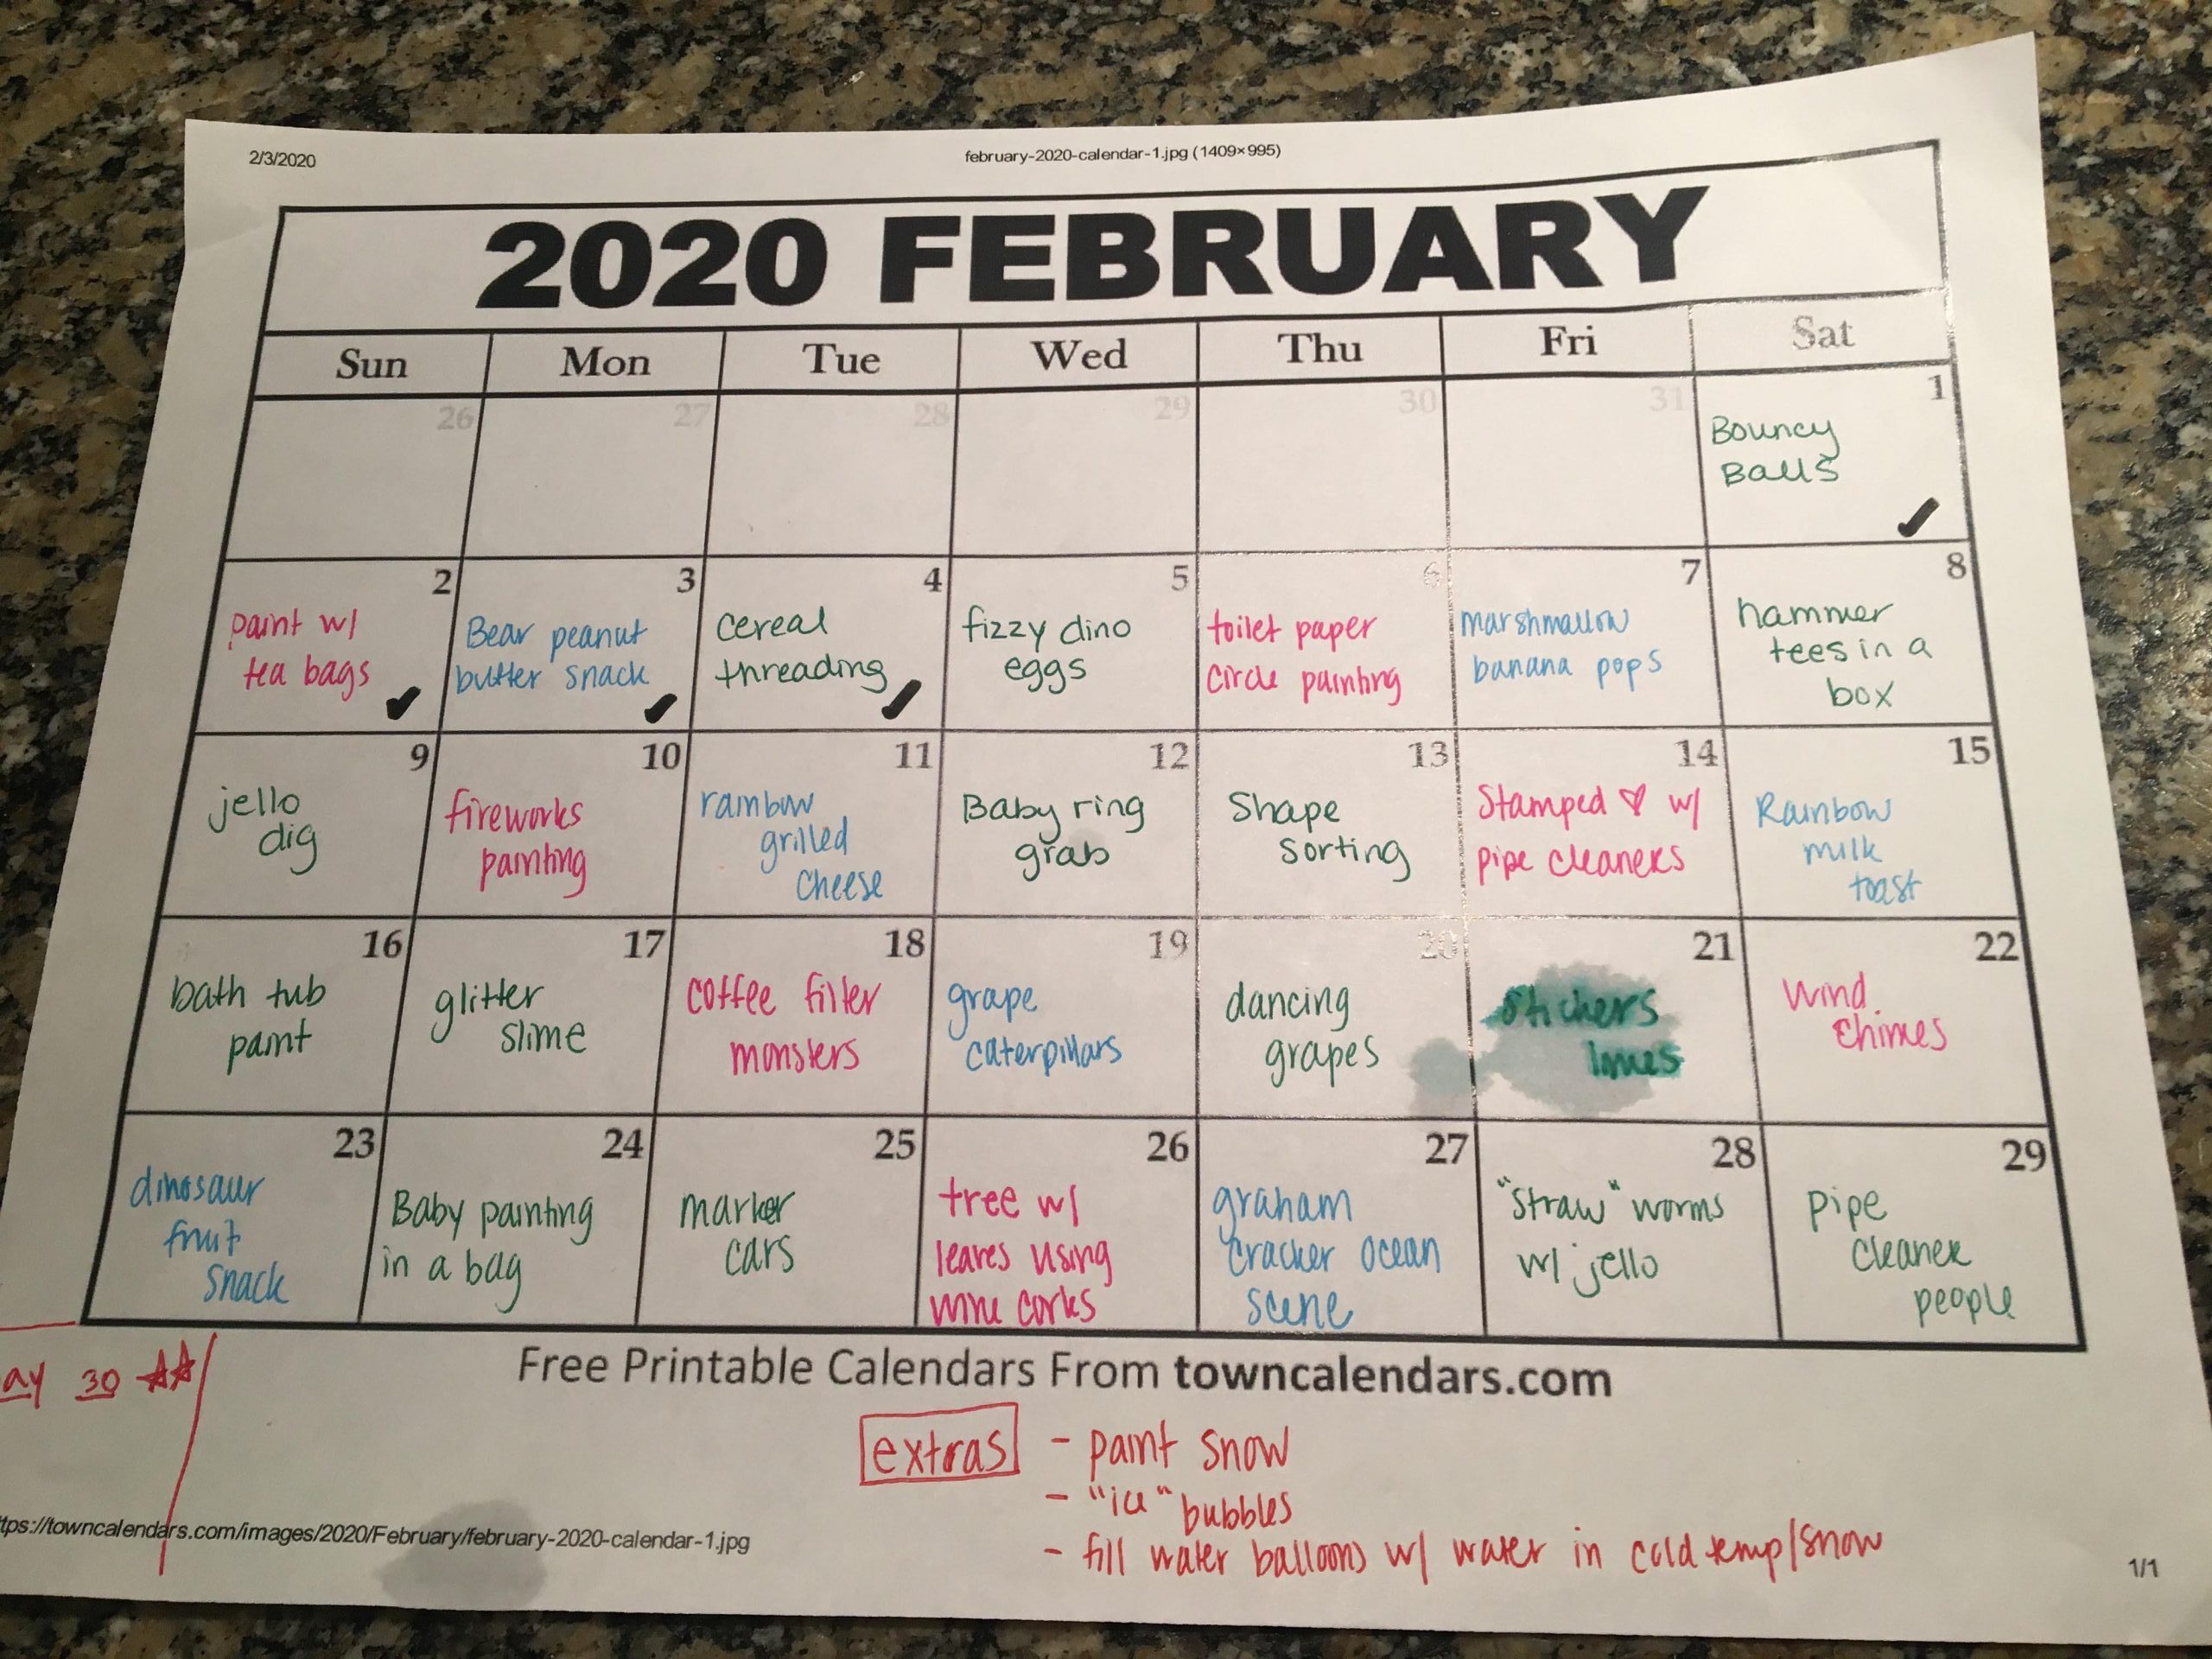 2/3/2020
february-2020-calendar-1.jpg (1409×995)
2020 FEBRUARY
Sun Mon Tue Wed Thu Fri Sat
26 27 28 29 30 31 1
Bouncy
Balls
✓
2
paint w/
tea bags
✓
3
Bear peanut
butter snack
✓
4
cereal
threading
✓
5
fizzy dino
eggs
6
toilet paper
circle painting
7
marshmallow
banana pops
8
hammer
tees in a
box
9
jello
dig
10
fireworks
painting
11
rainbow
grilled
cheese
12
Baby ring
grab
13
Shape
sorting
14
Stamped ♡ w/
pipe cleaners
15
Rainbow
milk
toast
16
bath tub
paint
17
glitter
slime
18
coffee filter
monsters
19
grape
caterpillars
20
dancing
grapes
21
stickers
lines
22
Wind
Chimes
23
dinosaur
fruit
snack
24
Baby painting
in a bag
25
marker
cars
26
tree w/
leaves using
wine corks
27
graham
cracker ocean
scene
28
"Straw" worms
w/ jello
29
pipe
cleaner
people
ay 30 ☆☆
Free Printable Calendars From towncalendars.com
extras - paint snow
- "ice" bubbles
- fill water balloons w/ water in cold temp/snow
tps://towncalendars.com/images/2020/February/february-2020-calendar-1.jpg
1/1